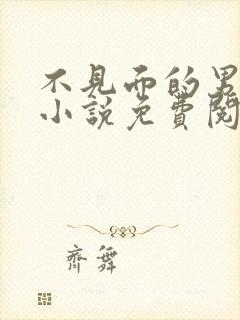 不見面的男
小說免費閱
齊舞